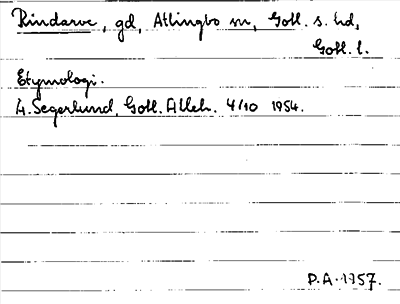 Rindarve, gd, Atlingbo sn, Gotl. s. hd,
Gotl. l.
Etymologi.
H. Segerlund, Gotl. Alleh. 4/10 1954.
P.A. 1957.